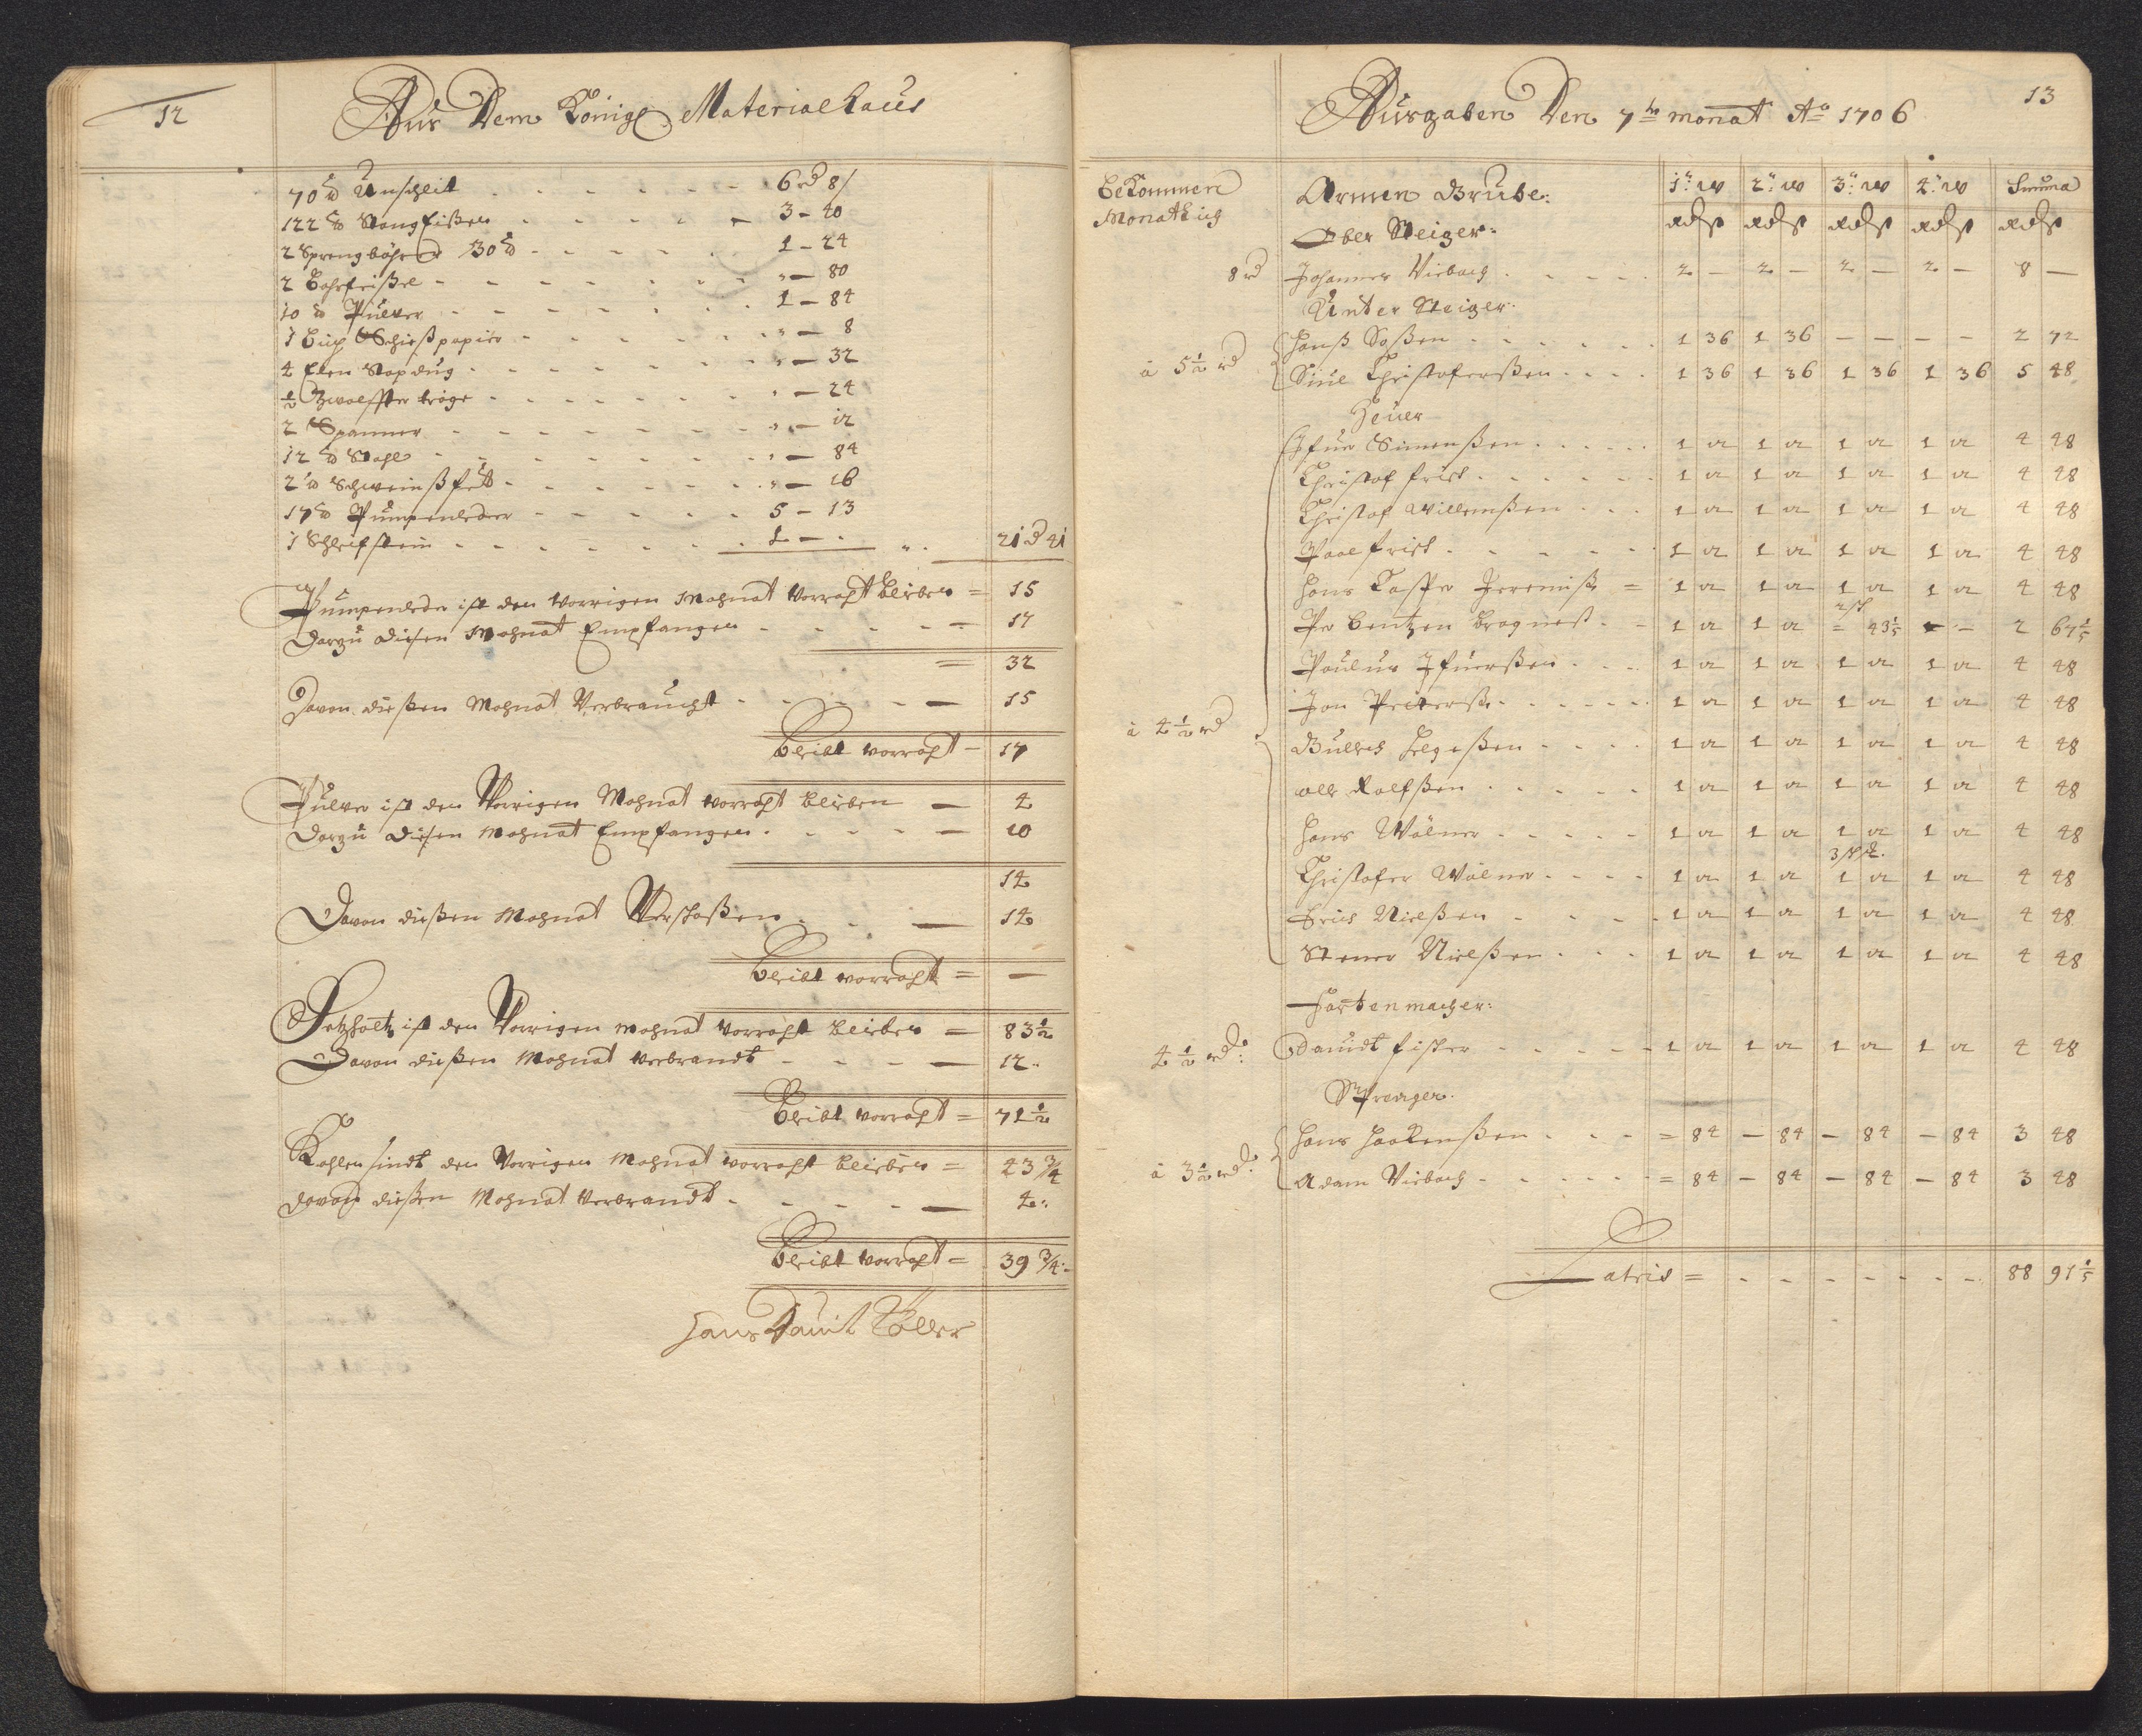 12
Aus Dem Königl Materialhaus
70 ℔ Unschlit - - - - - 6 rd 8
122 ℔ Stangeißen - - - - - 3 - 40
2 Sprengböhrer 30 ℔ - - - - 1 - 24
2 Bohrfeißel - - - - - " - 80
10 ℔ Pulver - - - - - 1 - 84
1 Buch Schießpapier - - - - - " - 8
4 Elen - - - - - " - 32
½ Zwolffter tröge - - - - - " - 24
2 Spanner - - - - - " - 12
12 ℔ Stahl - - - - - " - 84
2 ℔ Schweinßfett - - - - - " - 16
17 ℔ Pumpenleder - - - - - 5 - 13
1 Schleifstein - - - - - 1 - " - 21 rd 41
Pumpenleder ist den Vorrigen Mohnat Vorraht blieben = 15
darzu diesen Mohnat Empfangen - - - - - 17
= 32
Davon dießen Mohnat Verbraucht - - - - - 15
bleibt vorraht - 17
Pulver ist den Vorrigen Mohnat vorraht blieben — 4
darzu diesen Mohnat Empfangen - - - - - 10
14
Davon dießen Mohnat Verschoßen - - — 14
bleibt vorraht = —
Setzholtz ist den Vorrigen Mohnat vorraht blieben = 83½
Davon dießen Mohnat verbrandt - - - — 12 "
bleibt vorraht = 71½
Kohlen sindt den Vorrigen Mohnat vorraht blieben = 43¾
davon dießen Mohnat verbrandt - - - - — 4 "
bleibt vorraht = 39¾
Hans Davit Köller
13
Ausgaben Den 7te monat Ao 1706
bekommen Monathlich
Armen Grube: 1te w 2te w 3te w 4te w Summa
Ober Steiger: rd ß rd ß rd ß rd ß rd ß
8 rd Johannes Viebach - - - - - 2 — 2 — 2 — 2 — 8 —
Unter Steiger:
à 5½ rd
Hanß Soßen - - - - - 1 36 1 36 — — — — 2 72
Siul Christoferßen - - - - 1 36 1 36 1 36 1 36 5 48
Heuer
à 4½ rd
Ifuer Simenßen - - - - - 1 12 1 12 1 12 1 12 4 48
Christof frick - - - - - 1 12 1 12 1 12 1 12 4 48
Christof Willemßen - - - 1 12 1 12 1 12 1 12 4 48
Paal frick - - - - - 1 12 1 12 1 12 1 12 4 48
Hans Casper Jeremiß = 1 12 1 12 1 12 1 12 4 48
2 sch
Per Bentzen Bragnest - - 1 12 1 12 = 43⅕ — — 2 67⅕
Paulus Ifuerßen - - - 1 12 1 12 1 12 1 12 4 48
Jon Peterß - - - - - 1 12 1 12 1 12 1 12 4 48
Gullich Helgeßen - - - - 1 12 1 12 1 12 1 12 4 48
olle Rolfßen - - - - - 1 12 1 12 1 12 1 12 4 48
Hans Wölner - - - - - 1 12 1 12 1 12 1 12 4 48
3 sch
Christofer Wölner - - - - 1 12 1 12 1 12 1 12 4 48
Eric Nielßen - - - - 1 12 1 12 1 12 1 12 4 48
Stener Nielßen - - - 1 12 1 12 1 12 1 12 4 48
Hartenmacher:
4½ rd: Davidt fischer - - - - - 1 12 1 12 1 12 1 12 4 48
Strenger:
à 3½ rd:
Hans Haakenßen - - - = 84 — 84 — 84 — 84 3 48
Adam Viebach - - - - - = 84 — 84 — 84 — 84 3 48
Lateris = - - - - - - - 88 91⅕